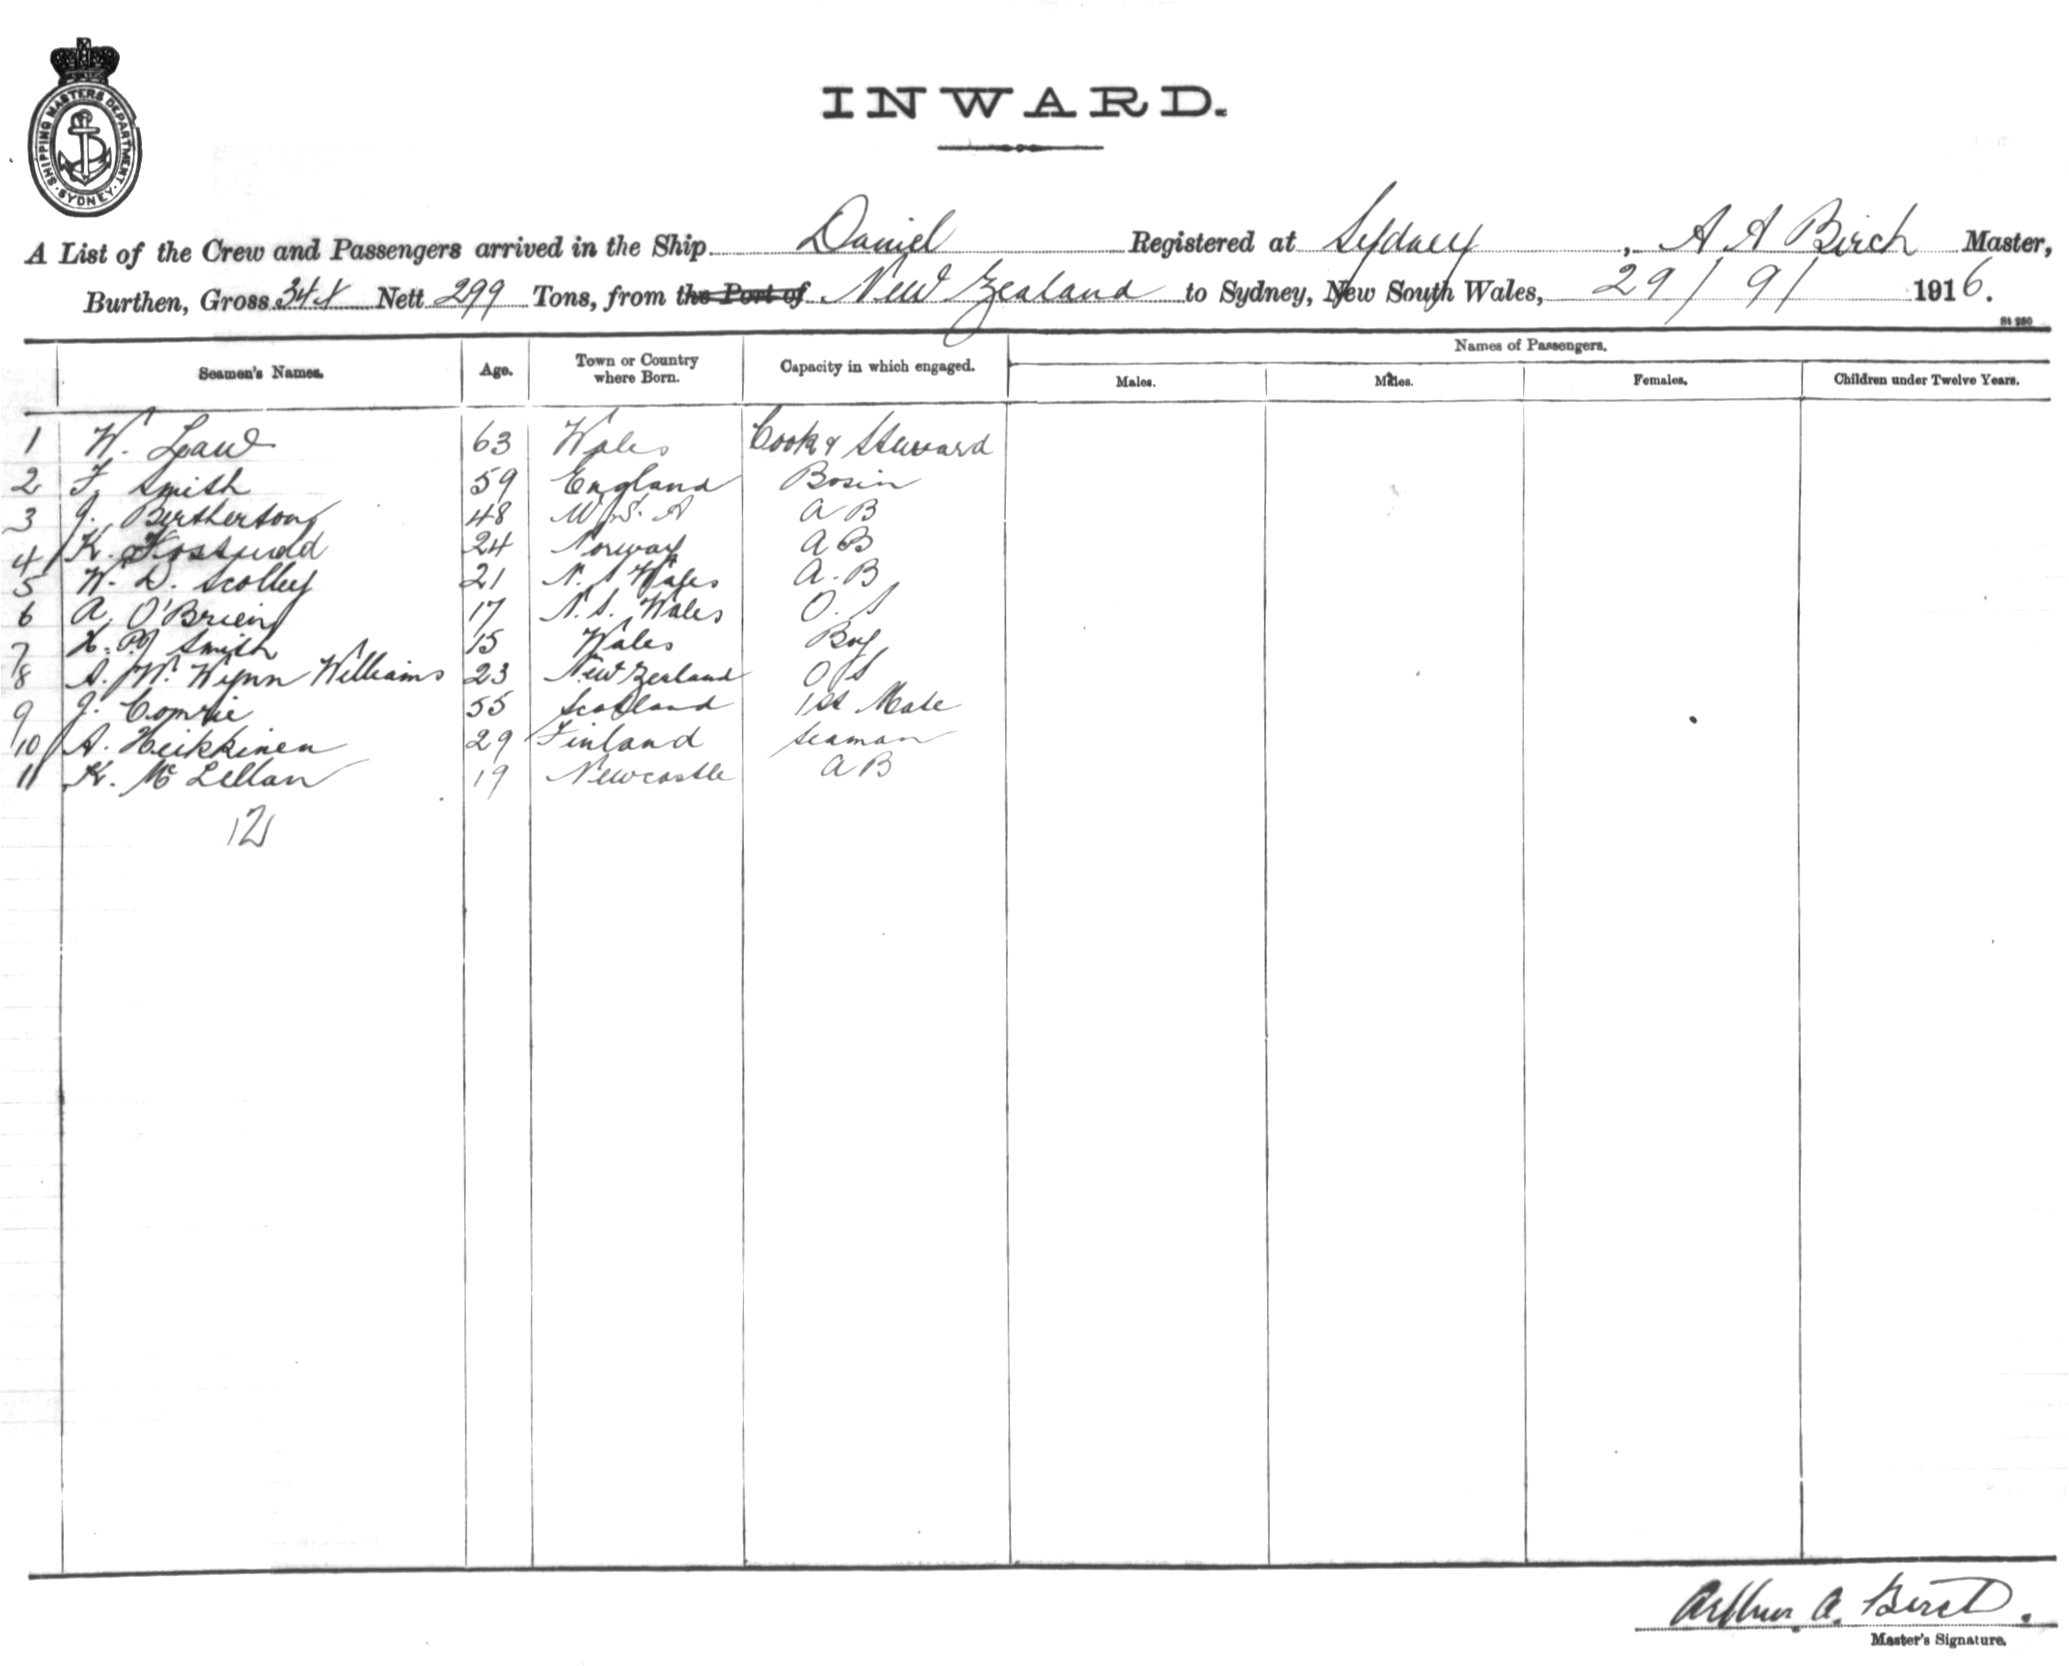 SHIPPING MASTERS DEPARTMENT · SYDNEY ·
INWARD.
A List of the Crew and Passengers arrived in the Ship Daniel Registered at Sydney, A A Birch Master,
Burthen, Gross Nett 299 Tons, from the Port of New Zealand to Sydney, New South Wales, 29/9/ 1916.
St 250
Seamen's Names. Age. Town or Country where Born. Capacity in which engaged. Names of Passengers.
Males. Males. Females. Children under Twelve Years.
1 W. Law 63 Wales Cook & Steward
2 F. Smith 59 England Bosin
3 J. Bertherton 48 U.S.A A B
4 K. 24 Norway A B
5 W. D. Scolley 21 N. S Wales A. B
6 A. O'Brien 17 N. S. Wales O. S
7 H. P. J Smith 15 Wales Boy
8 A. W. Wynn Williams 23 New Zealand O S
9 J. Comrie 55 Scotland 1st Mate
10 A. Heikkinen 29 Finland Seaman
11 K. Mc Lellan 19 Newcastle A B
12
Arthur A. Birch.
Master's Signature.